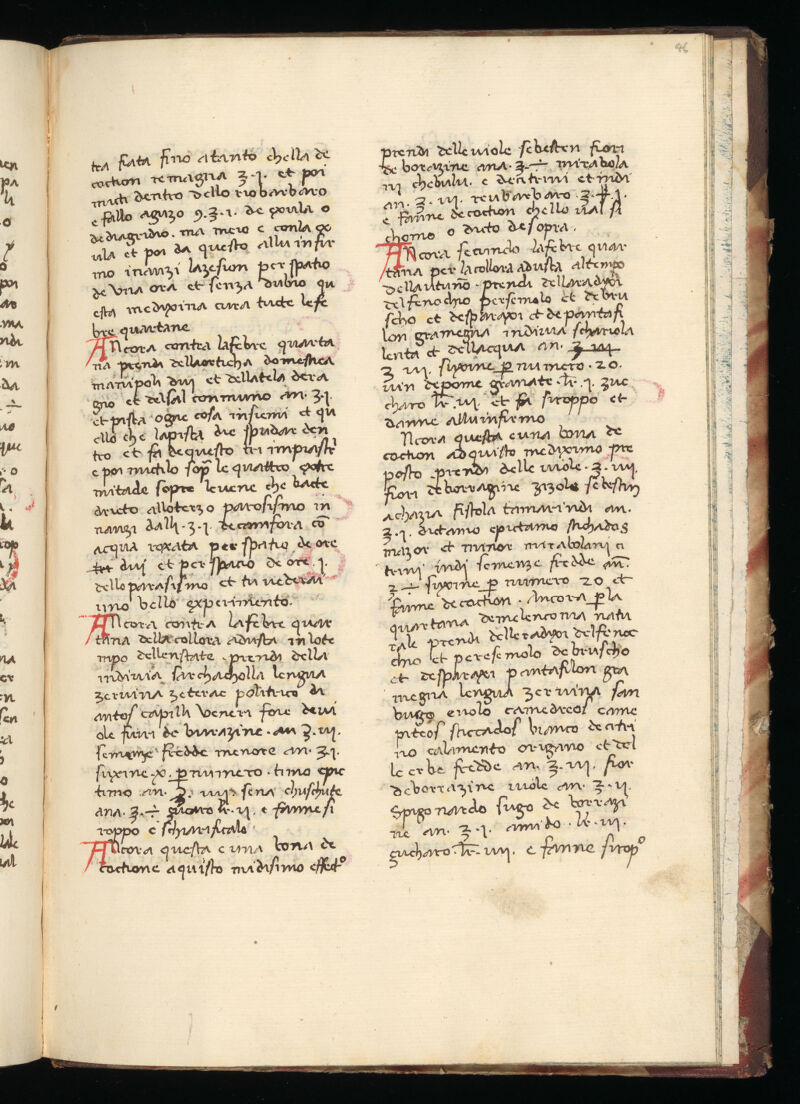 46
tra fiata fino atanto chella de
coction remagna ʒ·i· et poi
muti dentro dello riobarbaro
e fallo aguzo 9·ʒ·i· de exula o
de diagridio. ma meio e conla ex
ula et poi da questo allu infir
mo inanzi lazesion per spatio
de una ora et senza dubio qu
esta medixina cura tucte lefe
bre quartane
Ancora contra lafebre quarta
na prendi dellaorticha domestica
manipoli dui et dellatela dera
gno et delsal communo an. ʒ·i·
et pista ogne cosa insiemi et qu
ello che lapista die spudar den
tro et fa dequesto tri impiastri
e poi mitilo sopra le quattro extre
mitade sopre levene che bacte
dricto alloterzo parosismo in
nanzi dalli·ʒ·i· decamfora cō
acqua roxata per spatio de ore
dui et per spatio de ore·i·
dello parasismo et tu vederai
uno bello experimento.
Ancora contra lafebre quar
tana della collora adusta inlote
mpo dellenstate · prendi della
indiuia sarchacholla lengua
zeruina zeterac politrico di
antos capilli veneri fore deui
ole fiuri de burazine · an ʒ·iii·
semenze fredde menore an. ʒ·i·
suxine·x· p numero · timo epic
timo an. ʒ·iiii· sena chuschute
ana. ʒ·÷ zucaro lr·ii· e fanne si
roppo e schiarificalo
Ancora questa e una bona de
coctione aquisto midisimo effecto
prendi delle uiole sebesten fiori
de borazine ana·ʒ·÷ mirabola
ni chebuli. e decitrini et indi
an. ʒ·iii· reubarbaro·ʒ·i·
e fanne decoction chello ual si
chomo o dicto desopra.
Ancora secundo lafebre quar
tana per lacollora adusta altempo
dellautuno · prendi dellaradixi
delfenochio persemolo et debru
scho et desparaxi et depantafi
lon gramegna indiuia schariola
lenta et dellacqua an. ʒ iii
ʒ iii. suxine p numero · 20.
uin depome granate·lr·i· zuc
charo lr·iii· et fa siroppo et
danne alluinfirmo
Ncora questa e una bona de
coction adquisto mediximo pro
posto prendi delle uiole·ʒ·iii·
fiori deborragine zizole sebestin
achazia fistola tamarindi an.
ʒ·i· dictamo epictamo stichados
mazor et minor mirabolani ci
trini indi semenze fredde an.
ʒ÷ suxine p numero 20 et
fanne decoction · Ancora p la
quartana demelenconia natu
rale prendi delle radixi delfenoc
chio et peresemolo de bruscho
et desparaxi pantafilon gra
megna lengua zeruina san
bugo euolo camedreos came
piteos sticcados bianco decitri
no calamento origano et del
le erbe fredde an. ʒ·iii. fior
deborrazine uiole an. ʒ·ii.
Spigo nardo sugo de borrazi
ne an. ʒ·i. amido·lr·iii.
zucharo·lr·iiii. e fanne siropo